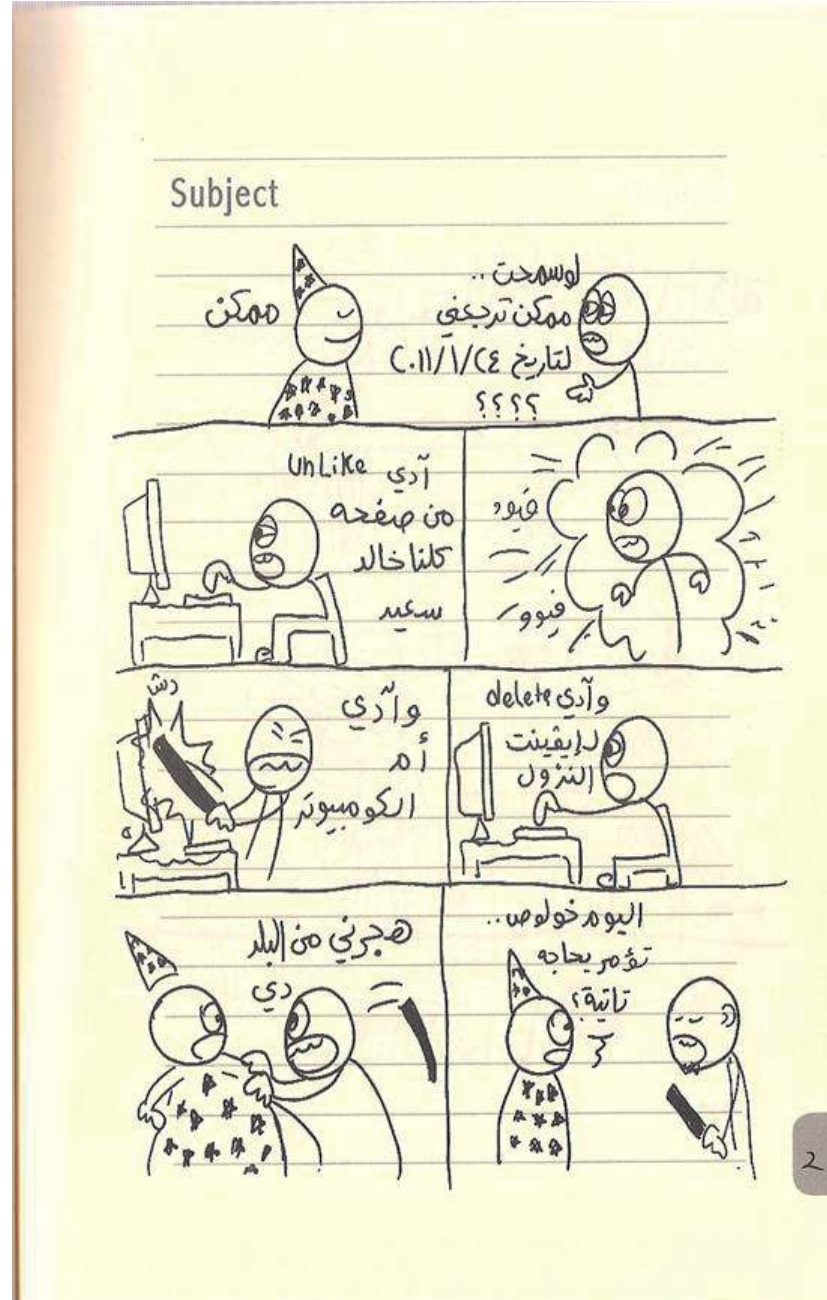 Subject
لو سمحت ..
ممكن ترجعني
لتاريخ ٢٤/١/٢٠١١
؟؟؟؟
ممكن
فيوو
فيوو
آدي unLike
من صفحه
كلنا خالد
سعيد
وآدي delete
لإيڤينت
النزول
وآدي
أم
الكومبيوتر
دش
اليوم خولوص..
تؤمر بحاجه
تانية؟
هجرني من البلد
دي
2